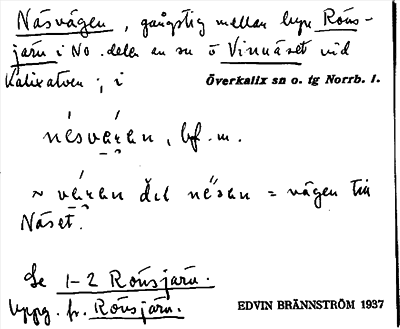 Näsvägen, gångstig mellan byn Röns-
järn i NO. delen av sn o Vinnäset vid
Kalixälven; i Överkalix sn o. tg Norrb. l.
nésvä́ran, bf. m.
~ vä́ran del nésan = vägen till
Näset.
Se 1-2 Rönsjärn.
Uppg. fr. Rönsjärn.
EDVIN BRÄNNSTRÖM 1937